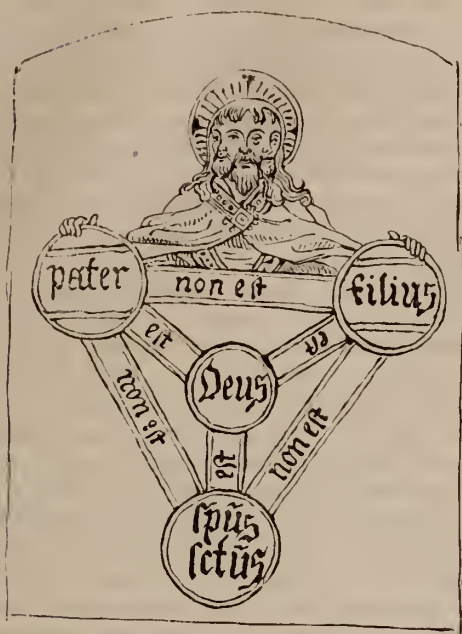 pater
non eſt
filius
eſt
eſt
Deus
non eſt
eſt
non eſt
ſpūs
ſctūs